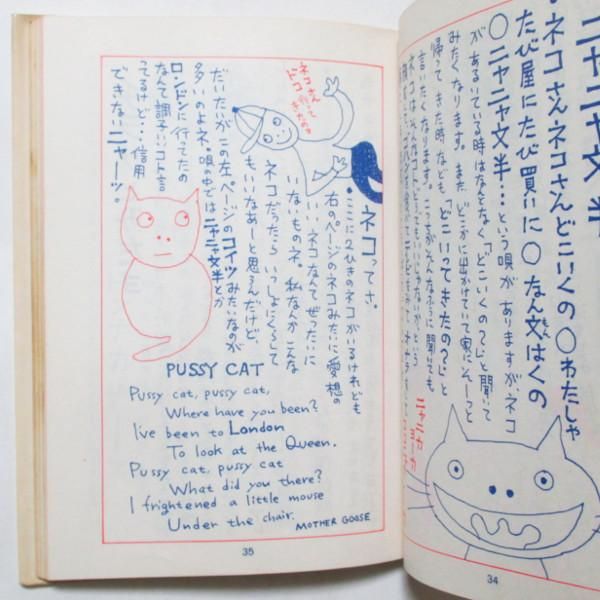 ニャニャ文半
・ネコさんネコさんどこいくの○わたしゃ
たび屋にたび買いに○なん文はくの
○ニャニャ文半…という唄がありますが、ネコ
があるいている時はなんとなく「どこいくの?」と聞いて
みたくなります。また、どこかに出かけていて家にそーっと
帰ってきた時なども、「どこいってきたの?」と
言いたくなります。こっちがそんなふうに聞いても、
34
・ネコってさ。
・ここに2ひきのネコがいるけれども
右のページのネコみたいに愛想の
いいネコなんてぜったいに
いないものネ。私なんかこんな
ネコだったらいっしょにくらして
もいいなあーと思えんだけど、
だいたいがこの左ページのコイツみたいなのが
多いのよネ。唄の中ではニャニャ文半とか
ロンドンに行ってたの
なんて調子いいコト言
ってるけど…信用
できないニャーッ。
ネコさん
ドコ行って
きたの?
PUSSY CAT
Pussy cat, pussy cat,
Where have you been?
I've been to London
To look at the Queen.
Pussy cat, pussy cat
What did you there?
I frightened a little mouse
Under the chair.
MOTHER GOOSE
35